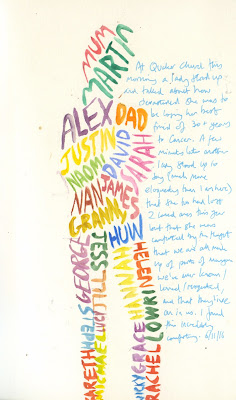 MUM
MARTIN
ALEX
DAD
JUSTIN
DAVID
SARAH
NAOMI
JAMES
NAN
GRANNY
HUW
TESS
GEORGE
HANNAH
HELEN
JILL
STEPH
LUCY
MICHAEL
GARETH
GRACE
LOWRI
RACHEL
At Quaker Church this
morning a lady stood up
and talked about how
devastated she was to
be losing her best
friend of 30+ years
to Cancer. A few
minutes later another
lady stood up to
say (much more
eloquently than I am here)
that she had lost
2 loved ones this year
but that she was
comforted by the thought
that we are all made
up of parts of everyone
we've ever known /
loved /
and that they live
on in us. I found
this incredibly
comforting. 6/11/16